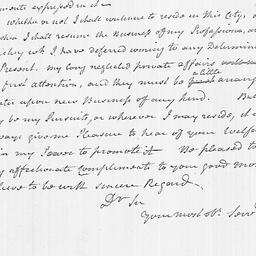 ments expressed in it
Whether or not I shall continue to reside in this City, o
when I shall resume the Business of my Profession, ar
which I have deferred coming to any Determin
Present. my long neglected private affairs
first attention, and they must be a little arrang
upon new Business of any kind. But
be my Pursuits, or wherever I may reside, it
ways give me Pleasure to hear of your Welfare
in my Power to promote it. Be pleased to
my affectionate Compliments to your good mo
lieve to be with sincere Regard.
Dr Sir
Your most Ob. Serv